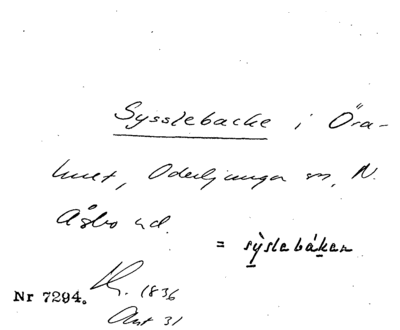 Sysslebacke i Öra-
hult, Oderljunga sn, N.
Åsbo hd.
= sỳslebáken
Nr 7294. 1836
Ant 31